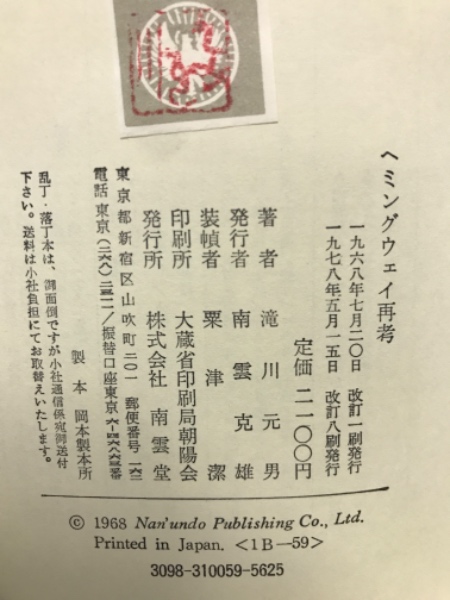 ヘミングウェイ再考
一九六八年七月二〇日 改訂一刷発行
一九七八年五月一五日 改訂八刷発行
定価 二一〇〇円
著者 滝川元男
発行者 南雲克雄
装幀者 粟津潔
印刷所 大蔵省印刷局朝陽会
発行所 株式会社 南雲堂
東京都新宿区山吹町二〇一 郵便番号一六二
電話東京(二六八)二三一一/振替口座東京六-四六八六三番
製本 岡本製本所
乱丁・落丁本は、御面倒ですが小社通信係宛御送付
下さい。送料は小社負担にてお取替えいたします。
© 1968 Nan'undo Publishing Co., Ltd.
Printed in Japan. <1B—59>
3098-310059-5625